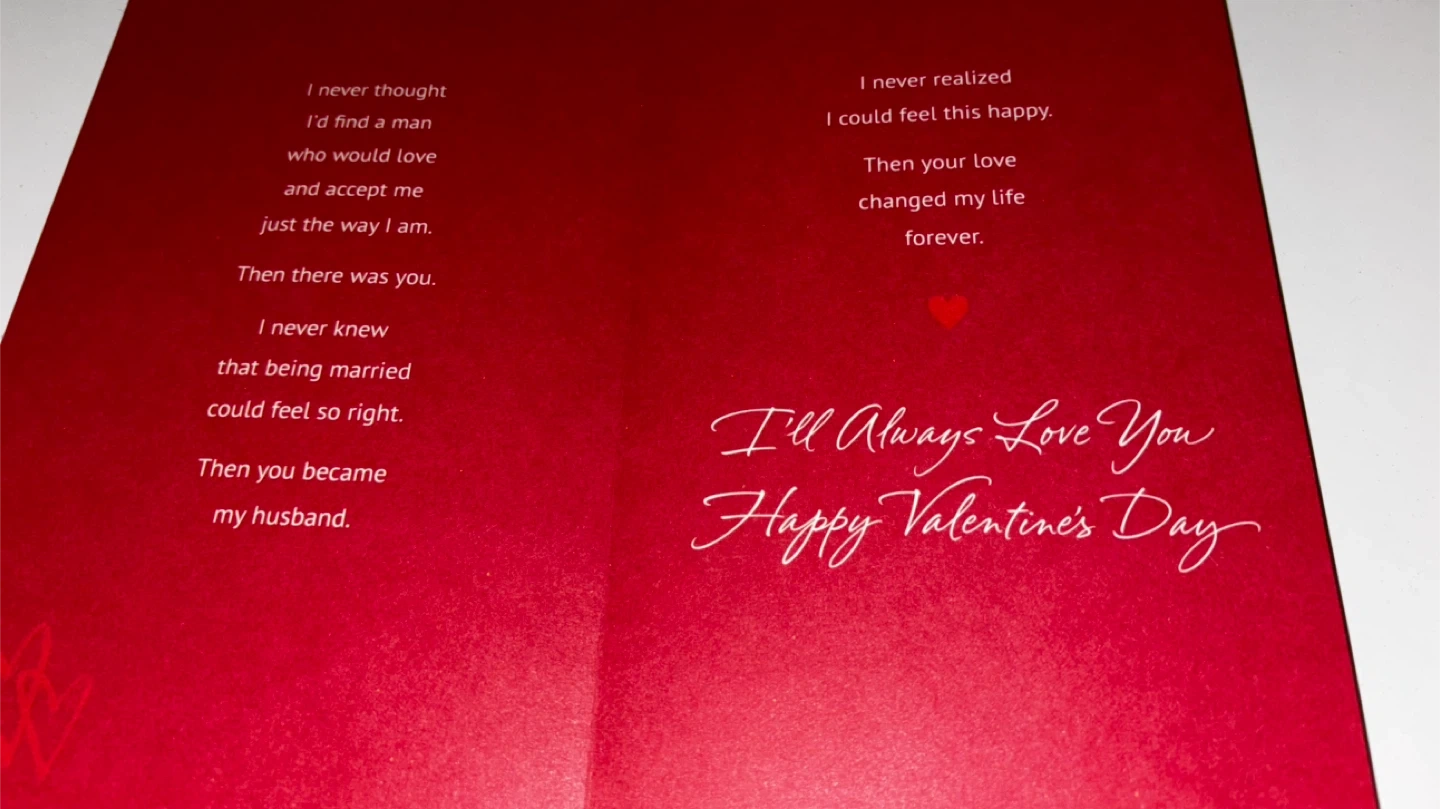 I never thought
I'd find a man
who would love
and accept me
just the way I am.
Then there was you.
I never knew
that being married
could feel so right.
Then you became
my husband.
I never realized
I could feel this happy.
Then your love
changed my life
forever.
I'll Always Love You
Happy Valentine's Day